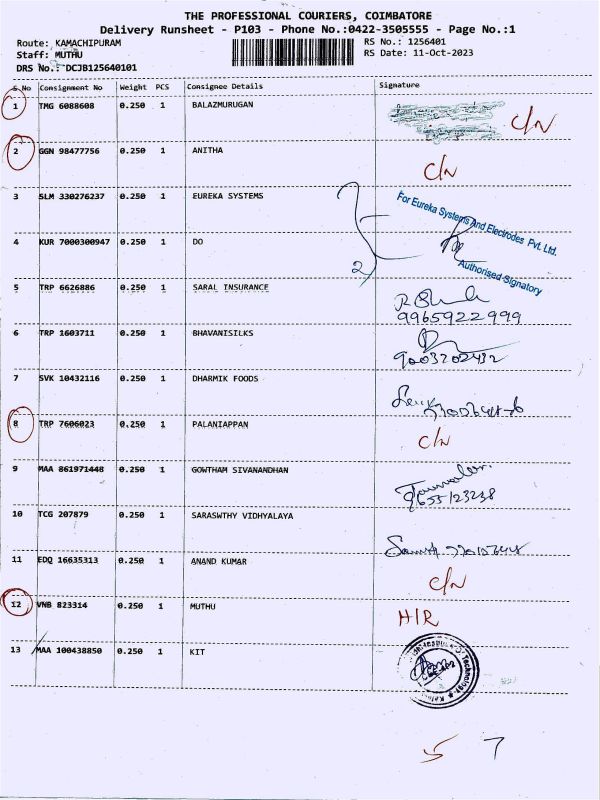 THE PROFESSIONAL COURIERS, COIMBATORE
Delivery Runsheet - P103 - Phone No.:0422-3505555 - Page No.:1
Route: KAMACHIPURAM RS No.: 1256401
Staff: MUTHU RS Date: 11-Oct-2023
DRS No.: DCJB125640101
S No Consignment No Weight PCS Consignee Details Signature
1 TMG 6088608 0.250 1 BALAZMURUGAN C/N
2 GGN 98477756 0.250 1 ANITHA C/N
3 SLM 330276237 0.250 1 EUREKA SYSTEMS
For Eureka Systems And Electrodes Pvt. Ltd.
4 KUR 7000300947 0.250 1 DO
2
Authorised Signatory
5 TRP 6626886 0.250 1 SARAL INSURANCE
9965922999
6 TRP 1603711 0.250 1 BHAVANISILKS
9003202432
7 SVK 10432116 0.250 1 DHARMIK FOODS
8 TRP 7606023 0.250 1 PALANIAPPAN C/N
9 MAA 861971448 0.250 1 GOWTHAM SIVANANDHAN
9655123238
10 TCG 207879 0.250 1 SARASWTHY VIDHYALAYA
11 EDQ 16635313 0.250 1 ANAND KUMAR C/N
12 VNB 823314 0.250 1 MUTHU H/R
13 MAA 100438850 0.250 1 KIT
Technology
5 7